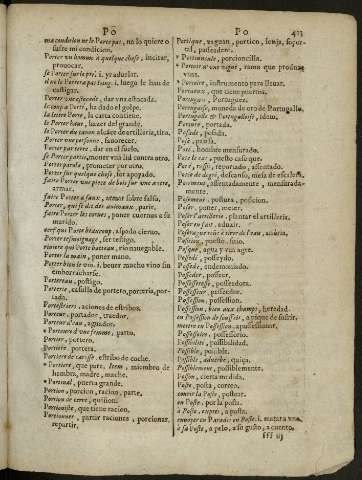 Po
Po
423
ma condition ne le Porte pas, no lo quiere o
sufre mi condicion.
Porter un homme a quelque chose, incitar,
prouocar.
se Porter sur le pré, i. yr a duelar.
il ne le Portera pas loing, i. luego le han de
castigar.
Porter une estocade, dar vna estocada.
le coup a Porté, ha dado el golpe.
la lettre Porte, la carta contiene.
le Porter haut, hazer del grande.
le Porter du canon alcance de artilleria, tiro.
Porter une personne, fauorecer.
Porter par terre, dar en el suelo.
se Porter partie, mouer vna lid contra otro.
Porter parole, pronunciar por otro.
Porter sur quelque chose, ser apoyado.
faire Porter une piece de bois sur une autre,
armar.
faire Porter a faux, armar sobre falso.
Porter, qui se dit des animaux, parir.
faire Porter les cornes, poner cuernos a su
marido.
cerf que Porte beaucoup, aspado cieruo.
Porter tesmoignage, ser testigo.
riuiere qui Porte batteau, rio nauegable.
Porter la main, poner mano.
Porter bien le vin, i. beuer mucho vino sin
emborracharse.
Portereau, postigo.
Porterie, casilla de portero, porteria, por-
tada.
Portestriers, aciones de estribos.
Porteur, portador, traedor.
Porteur d'eau, aguador.
Porteure d'une femme, parto.
Portier, portero.
Portiere, portera.
Portiere de carosse, estribo de coche.
Portiere, que pare, Item, miembro de
hembra, madre, mache.
Portinal, puerta grande.
Portion, porcion, racion, parte.
Portion de cerre, quiñon.
Portioniste, que tiene racion.
Portionner, partir raciones, porcionar,
repartir.
Portique, zaguan, portico, lonja, sopor-
tal, passeadero.
Portiuncule, porcioncilla.
Portoir d'une vigne, ramo que produze
vuas.
Portoire, instrumento para lleuar.
Portueux, que tiene puertos.
Portugais, Portugues.
Portugaise, moneda de oro de Portugallo.
Portugalle & Portugallois, idem.
Porture, portada.
Posade, posada.
Posé, pausa.
Posé, hombre mensurado.
Posé le cas, puesto caso que.
Posé, rassis, reportado, assentado.
Posée de degré, descanso, mesa de escalera.
Posement, assentadamente, mensurada-
mente.
Posement, postura, posicion.
Poser, poner, meter.
Poser l'artillerie, plantar el artilleria.
Poser en fait, aduzir.
Position, puesto, sitio.
Posque, agua y vinagre.
Possedé, posseydo.
Possedé, endemoniado.
Posseder, posseer.
Possesseresse, possedora.
Possesseur, posseedor.
Possession, possession.
Possession, bien aux champs, heredad.
en Possession de souffrir, a pique de sufrir.
mettre en Possession, apossessionar.
Possessoire, possessorio.
Possibilité, possibilidad.
Possible, possible.
Possible, aduerbe, quiça.
Possiblement, possiblemente.
Posson, cierta medida.
Poste, posta, correo.
courir la Poste, postear.
en Poste, por la posta.
à Poste, exprés, a posta.
enuoyer en Paradis en Poste, i. matar a vno.
à sa Poste, a pelo, a su gusto, a cuento.
fff iij